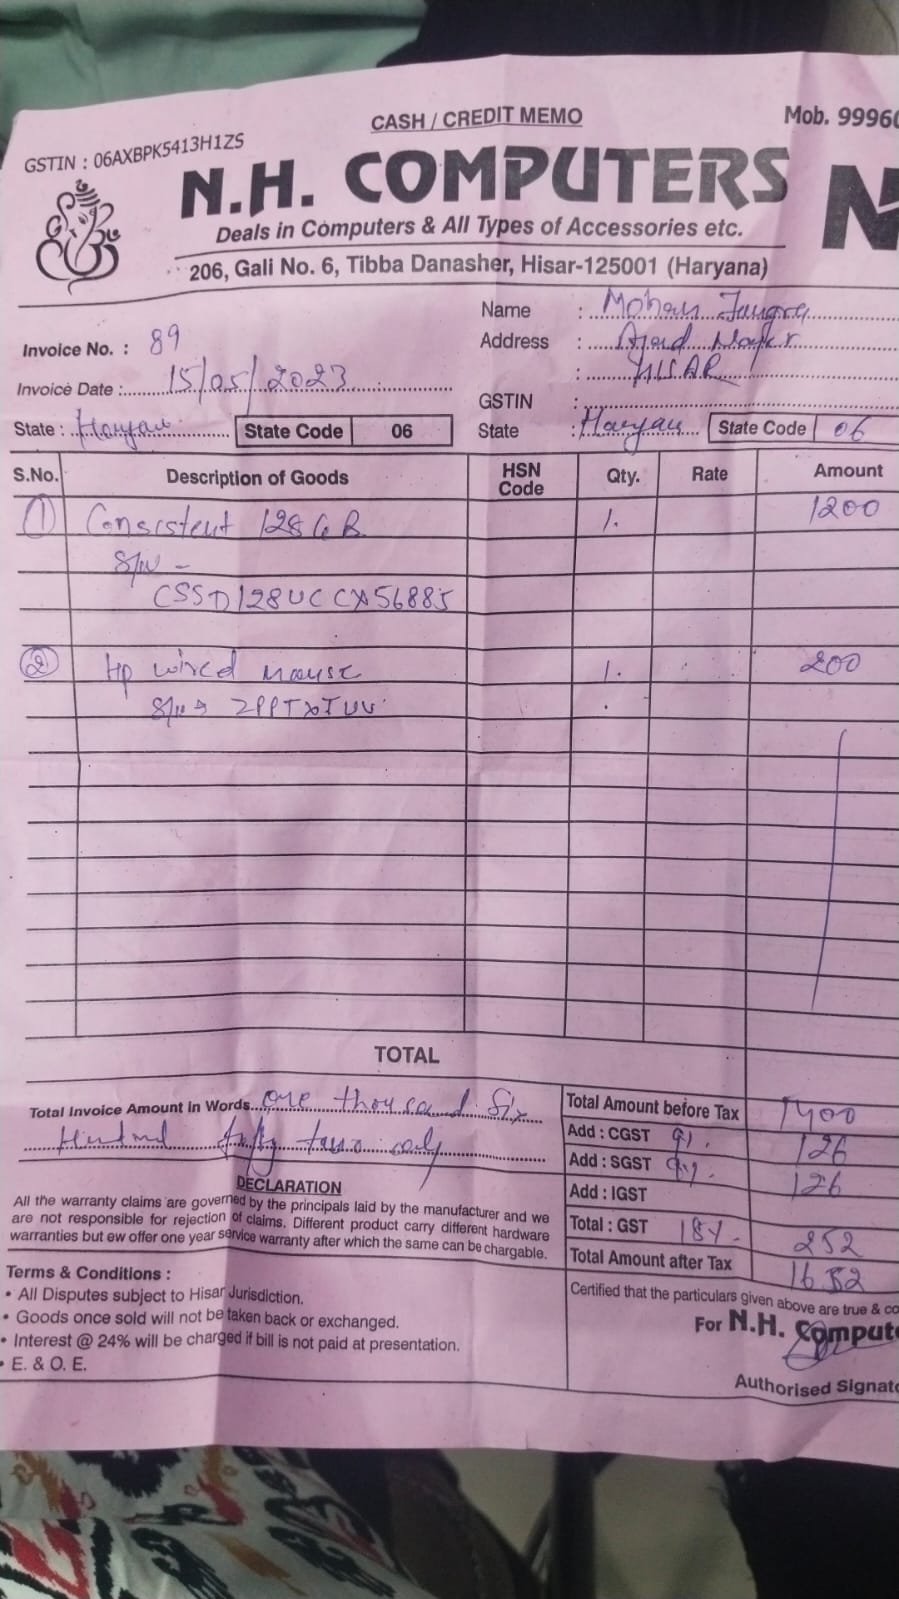 CASH / CREDIT MEMO
Mob. 9996
GSTIN : 06AXBPK5413H1ZS
N.H. COMPUTERS
Deals in Computers & All Types of Accessories etc.
206, Gali No. 6, Tibba Danasher, Hisar-125001 (Haryana)
Name : Mohan Jangra
Invoice No. : 89
Address : Nagar
HISAR
Invoice Date : 15/05/2023
GSTIN :
State : Haryana State Code 06
State : Haryana State Code 06
S.No. Description of Goods HSN Code Qty. Rate Amount
1 Consistent 128 GB 1. 1200
S/N -
CSSD128UCCX56885
2 Hp wired mouse 1. 200
S/N
TOTAL
Total Invoice Amount in Words one thousand Six
Hundred fifty two only
Total Amount before Tax 1400
Add : CGST 9%. 126
Add : SGST 9%. 126
Add : IGST
Total : GST 18% 252
Total Amount after Tax 1652
DECLARATION
All the warranty claims are governed by the principals laid by the manufacturer and we
are not responsible for rejection of claims. Different product carry different hardware
warranties but ew offer one year service warranty after which the same can be chargable.
Terms & Conditions :
• All Disputes subject to Hisar Jurisdiction.
• Goods once sold will not be taken back or exchanged.
• Interest @ 24% will be charged if bill is not paid at presentation.
• E. & O. E.
Certified that the particulars given above are true & co
For N.H. Compute
Authorised Signat